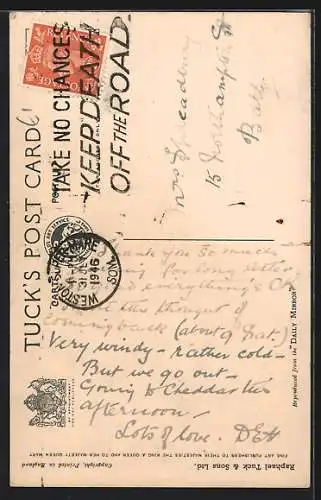 TUCK'S POST CARD
CARTE POSTALE
POSTAGE
TAKE NO CHANCES
KEEP DEATH
OFF THE ROAD.
WESTON-SUPER-MARE
1946
SOM
Mrs
15 Northampton St
Bath
thank you so much
for long letter
everything's O.K.
the thought of
coming back (about 9 Sat.)
Very windy - rather cold -
But we go out -
Going to Cheddar this
afternoon -
Lots of love. DEH
Reproduced from the "DAILY MIRROR"
Raphael Tuck & Sons Ltd.
FINE ART PUBLISHERS TO THEIR MAJESTIES THE KING & QUEEN AND TO HER MAJESTY QUEEN MARY
Copyright. Printed in England